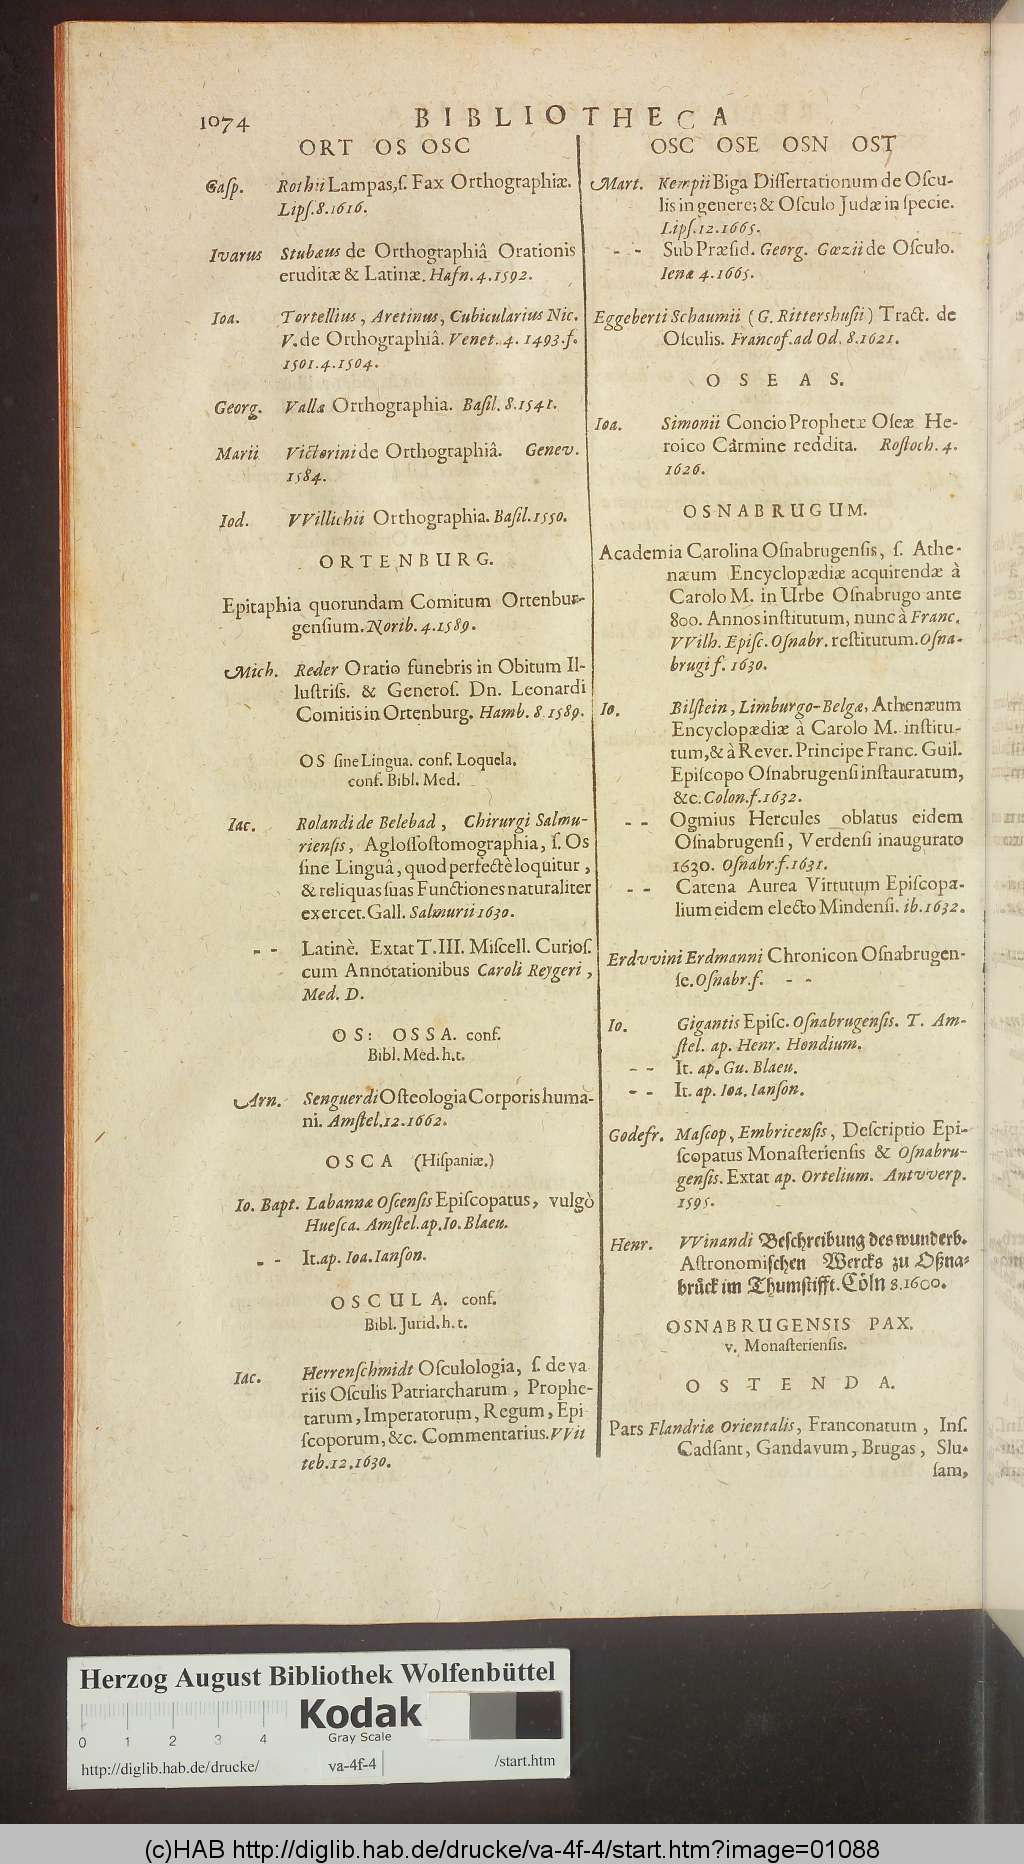 1074
BIBLIOTHECA
ORT OS OSC
Gaſp. Rothii Lampas, ſ. Fax Orthographiæ.
Lipſ. 8. 1616.
Ivarus Stubæus de Orthographiâ Orationis
eruditæ & Latinæ. Hafn. 4. 1592.
Ioa. Tortellius, Aretinus, Cubicularius Nic.
V. de Orthographiâ. Venet. 4. 1493. f.
1501. 4. 1504.
Georg. Valla Orthographia. Baſil. 8. 1541.
Marii Victorini de Orthographiâ. Genev.
1584.
Iod. VVillichii Orthographia. Baſil. 1550.
ORTENBURG.
Epitaphia quorundam Comitum Ortenbur-
genſium. Norib. 4. 1589.
Mich. Reder Oratio funebris in Obitum Il-
luſtriſs. & Generoſ. Dn. Leonardi
Comitis in Ortenburg. Hamb. 8. 1589.
OS ſine Lingua. conf. Loquela.
conf. Bibl. Med.
Iac. Rolandi de Belebad, Chirurgi Salmu-
rienſis, Agloſſoſtomographia, ſ. Os
ſine Linguâ, quod perfectè loquitur,
& reliquas ſuas Functiones naturaliter
exercet. Gall. Salmurii 1630.
- - Latinè. Extat T. III. Miſcell. Curioſ.
cum Annotationibus Caroli Reygeri,
Med. D.
OS: OSSA. conf.
Bibl. Med. h. t.
Arn. Senguerdi Oſteologia Corporis huma-
ni. Amſtel. 12. 1662.
OSCA (Hiſpaniæ.)
Io. Bapt. Labannæ Oſcenſis Epiſcopatus, vulgò
Hueſca. Amſtel. ap. Io. Blaeu.
- - It. ap. Ioa. Ianſon.
OSCULA. conf.
Bibl. Jurid. h. t.
Iac. Herrenſchmidt Oſculologia, ſ. de va
riis Oſculis Patriarcharum, Prophe-
tarum, Imperatorum, Regum, Epi
ſcoporum, &c. Commentarius. VVit
teb. 12. 1630.
OSC OSE OSN OST
Mart. Kempii Biga Diſſertationum de Oſcu-
lis in genere; & Oſculo Judæ in ſpecie.
Lipſ. 12. 1665.
- - Sub Præſid. Georg. Gœzii de Oſculo.
Ienæ 4. 1665.
Eggeberti Schaumii (G. Rittershuſii) Tract. de
Oſculis. Francof. ad Od. 8. 1621.
OSEAS.
Ioa. Simonii Concio Prophetæ Oſeæ He-
roico Carmine reddita. Roſtoch. 4.
1626.
OSNABRUGUM.
Academia Carolina Oſnabrugenſis, ſ. Athe-
næum Encyclopædiæ acquirendæ à
Carolo M. in Urbe Oſnabrugo ante
800. Annos inſtitutum, nunc à Franc.
VVilh. Epiſc. Oſnabr. reſtitutum. Oſna-
brugi f. 1630.
Io. Bilſtein, Limburgo-Belgæ, Athenæum
Encyclopædiæ à Carolo M. inſtitu-
tum, & à Rever. Principe Franc. Guil.
Epiſcopo Oſnabrugenſi inſtauratum,
&c. Colon. f. 1632.
- - Ogmius Hercules oblatus eidem
Oſnabrugenſi, Verdenſi inaugurato
1630. Oſnabr. f. 1631.
- - Catena Aurea Virtutum Epiſcopa-
lium eidem electo Mindenſi. ib. 1632.
Erdvvini Erdmanni Chronicon Oſnabrugen-
ſe. Oſnabr. f. - -
Io. Gigantis Epiſc. Oſnabrugenſis. T. Am-
ſtel. ap. Henr. Hondium.
- - It. ap. Gu. Blaeu.
- - It. ap. Ioa. Ianſon.
Godefr. Maſcop, Embricenſis, Deſcriptio Epi-
ſcopatus Monaſterienſis & Oſnabru-
genſis. Extat ap. Ortelium. Antvverp.
1595.
Henr. VVinandi Beſchreibung des wunderb.
Aſtronomiſchen Wercks zu Oßna-
brück im Thumſtifft. Cöln 8. 1600.
OSNABRUGENSIS PAX.
v. Monaſterienſis.
OSTENDA.
Pars Flandriæ Orientalis, Franconatum, Inſ.
Cadſant, Gandavum, Brugas, Slu-
ſam,
Herzog August Bibliothek Wolfenbüttel
Kodak
Gray Scale
0 1 2 3 4
http://diglib.hab.de/drucke/ va-4f-4 /start.htm
(c)HAB http://diglib.hab.de/drucke/va-4f-4/start.htm?image=01088